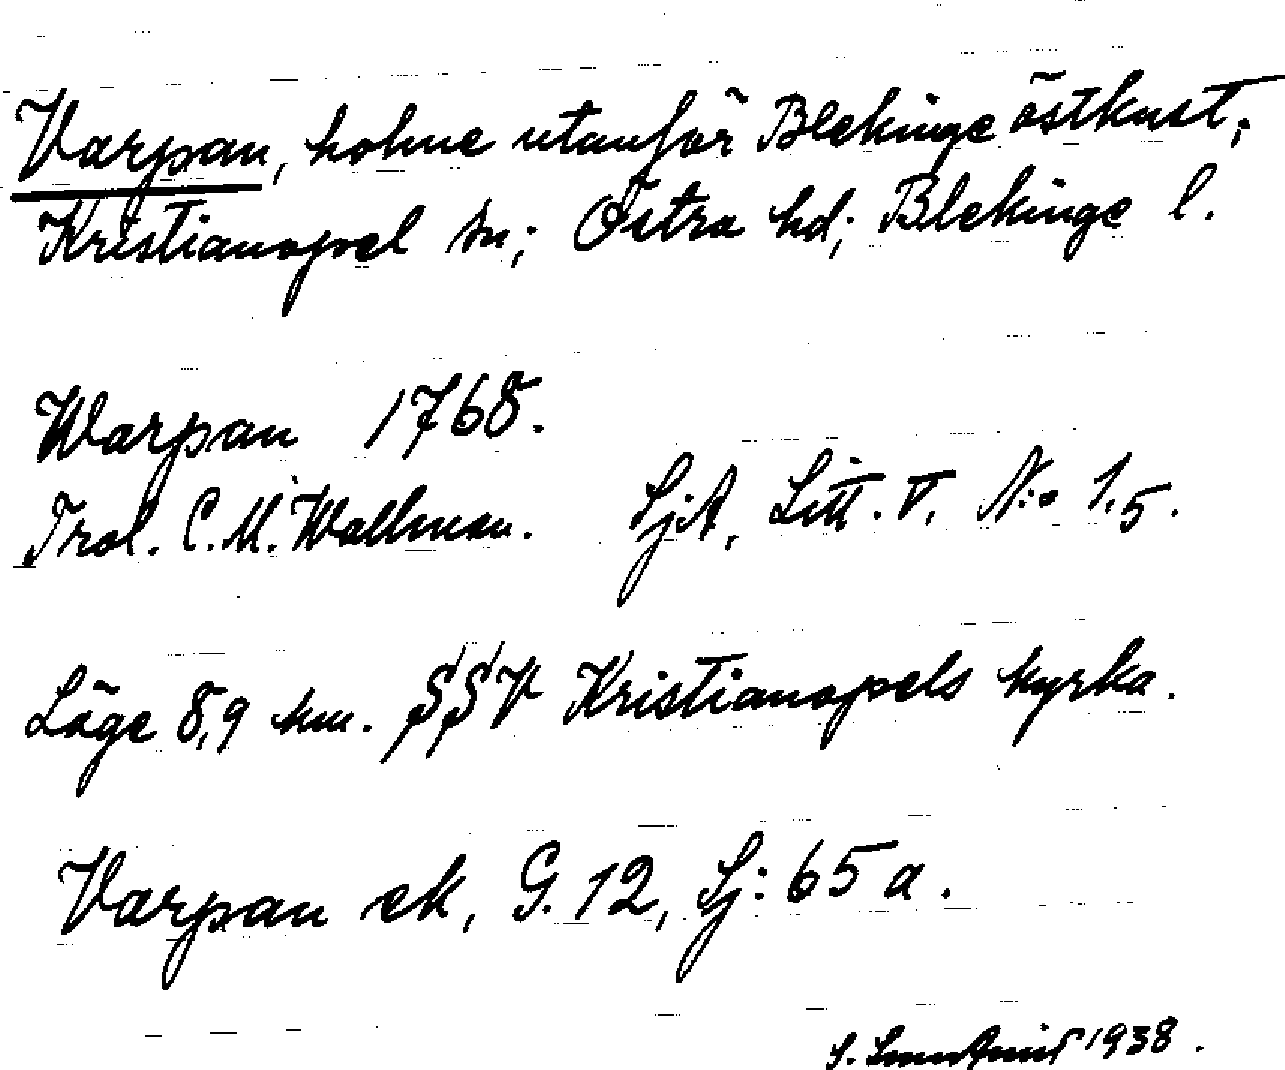 Varpan, holme utanför Blekinge östkust,
Kristianopel sn; Östra hd; Blekinge l.
Warpan 1768.
C. M. Wallman. SjA, Litt. V. N:o 1.5.
Läge 8,9 km. SSV Kristianopels kyrka.
Varpan ek, G. 12, Sj: 65 a.
S. 1938.